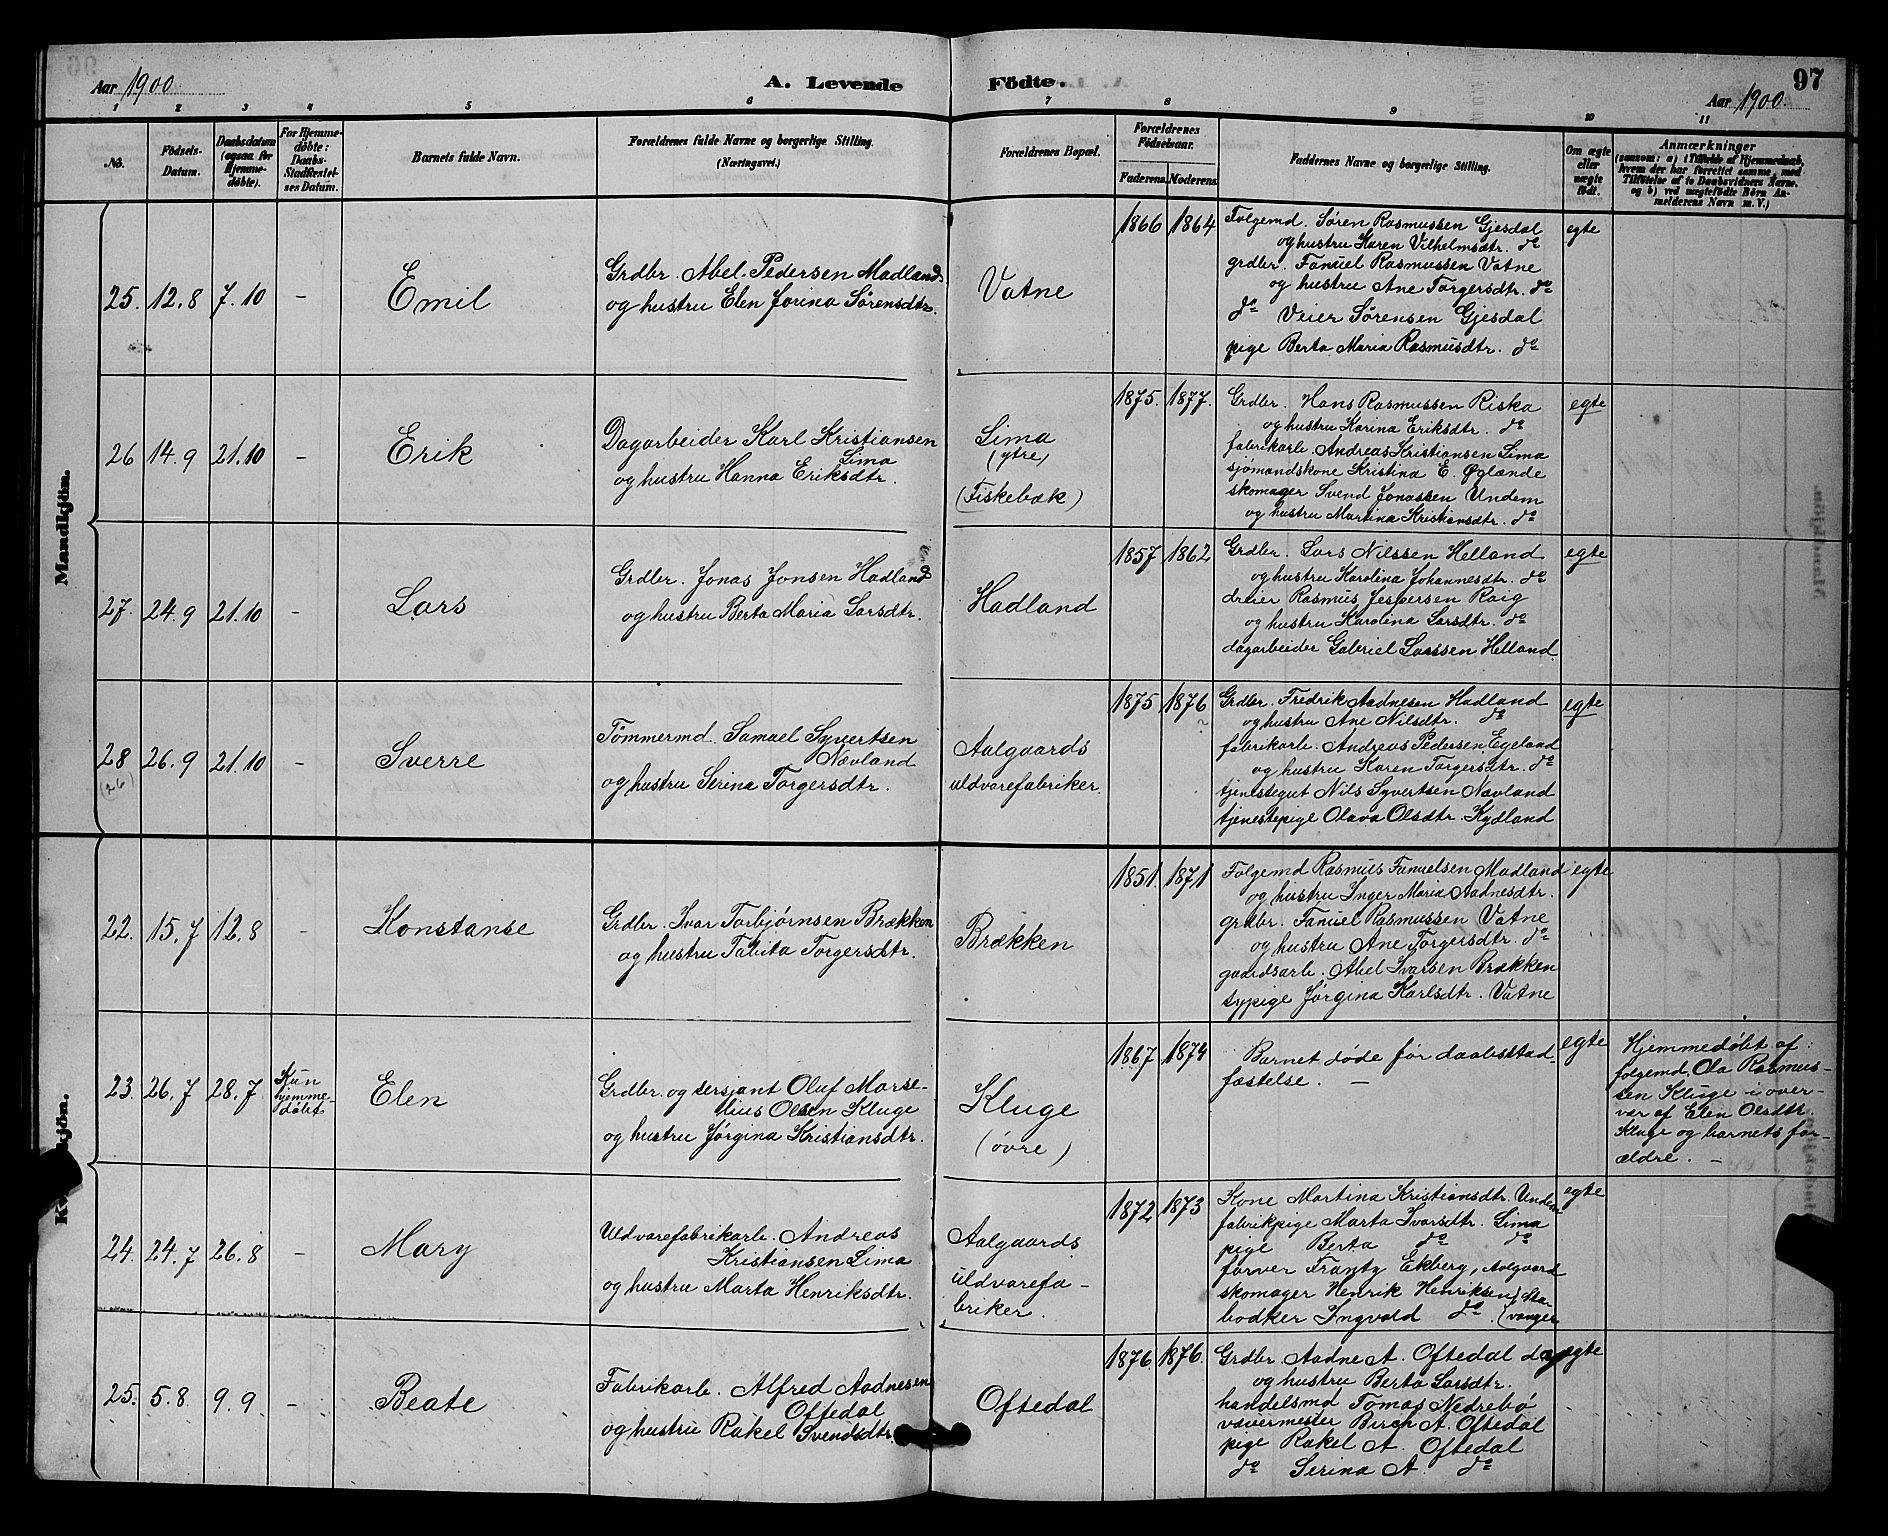 Aar 1900
A. Levende Födte.
97
Aar 1900.
1 2 3 4 5 6 7 8 9 10 11
No.
Födsels-
Datum.
Daabsdatum
(ogsaa for
Hjemme-
döbte).
For Hjemme-
döbte:
Daabs-
Stadfæstel-
ses Datum.
Barnets fulde Navn.
Forældrenes fulde Navne og borgerlige Stilling.
(Næringsvei.)
Forældrenes Bopæl.
Forældrenes
Födselsaar.
Faderens. Moderens.
Faddernes Navne og borgerlige Stilling.
Om ægte
eller
uægte
födt.
Anmærkninger
(saasom: a) i Tilfælde af Hjemmedaab,
hvem der har forrettet samme, med
Tilföielse af to Daabsvidners Navne,
og b) ved uægtefödte Börn An-
melderens Navn m. V.)
Mandkjön.
25. 12.8 7.10 – Emil
Grdbr. Abel Pedersen Madland
og hustru Elen Jorina Sörensdtr.
Vatne
1866 1864
Folgemd. Søren Rasmussen Gjesdal
og hustru Karen Vilhelmsdtr. do
grdbr. Fanuel Rasmussen Vatne
og hustru Ane Torgersdtr. do
do Veier Sørensen Gjesdal
pige Berta Maria Rasmusdtr. do
egte
26 14.9 21.10 – Erik
Dagarbeider Karl Kristiansen
Lima
og hustru Hanna Eriksdtr.
Lima
(ytre)
(Fiskebæk)
1875. 1877.
Grdbr. Hans Rasmussen Riska
og hustru Karina Eriksdtr. do
fabrikarb. Andreas Kristiansen Lima
sjømandskone Kristina E. Øglænde
skomager Svend Jonassen Undem
og hustru Martina Kristiansdtr. do
egte
27. 24.9 21.10 – Lars
Grdbr. Jonas Jonsen Hadland
og hustru Berta Maria Larsdtr.
Hadland
1857 1862
Grdbr. Lars Nilssen Helland
og hustru Karolina Johannesdtr. do
dreier Rasmus Jespersen Raig
og hustru Karolina Larsdtr. do
dagarbeider Gabriel Larssen Helland.
egte
28 26.9 21.10 – Sverre
(26)
Tömmermd. Samuel Syvertsen
Nævland
og hustru Serina Torgersdtr.
Aalgaards
uldvarefabriker.
1875 1876
Grdbr. Fredrik Aadnesen Hadland
og hustru Ane Nilsdtr. do
fabrikarb. Andreas Pedersen Egeland
og hustru Karen Torgersdtr. do
tjenestegut Nils Syvertsen Nævland
tjenestepige Olava Olsdtr. Kydland
egte
22. 15.7 12.8 – Konstanse
Grdbr. Ivar Torbjørnsen Brækken
og hustru Tabita Torgersdtr.
Brækken
1851. 1871
Folgemd Rasmus Fanuelsen Madland
og hustru Inger Maria Aadnesdtr.
grdbr. Fanuel Rasmussen Vatne
og hustru Ane Torgersdtr. do
gaardsarb. Abel Ivarsen Brækken
sypige Jørgina Karlsdtr. Vatne
egte
23. 26.7 28.7
Kun
hjemme-
døbt
Elen
Grdbr. og sersjant Oluf Marse-
lius Olsen Kluge
og hustru Jørgina Kristiansdtr.
Kluge
(övre)
1867 1874
Barnet døde før daabsstad-
fæstelse. –
egte
Hjemmedøbt af:
folgemd. Ola Rasmus-
sen Kluge i over-
vær af Elen Olsdtr.
Kluge og barnets for-
ældre. –
24. 24.7 26.8 – Mary
Uldvarefabrikarb. Andreas
Kristiansen Lima
og hustru Marta Henriksdtr.
Aalgaards
uldvarefa-
briker.
1872 1873
Kone Martina Kristiansdtr. Undem
fabrikpige Marta Ivarsdtr. Lima
pige Berta do do
farver Frantz Ekberg, Aalgaard
skomager Henrik Henriksen, (Sta-
bødker Ingvald do. (vanger
egte
25. 5.8 9.9 – Beate
Fabrikarb. Alfred Aadnesen
Oftedal
og hustru Rakel Svendsdtr.
Oftedal
1876 1876.
Grdbr. Aadne A. Oftedal
og hustru Berta Larsdtr.
handelsmd Tomas Nedrebö
vævermester Birch A. Oftedal
pige Rakel A. Oftedal
do Serina A. do
egte